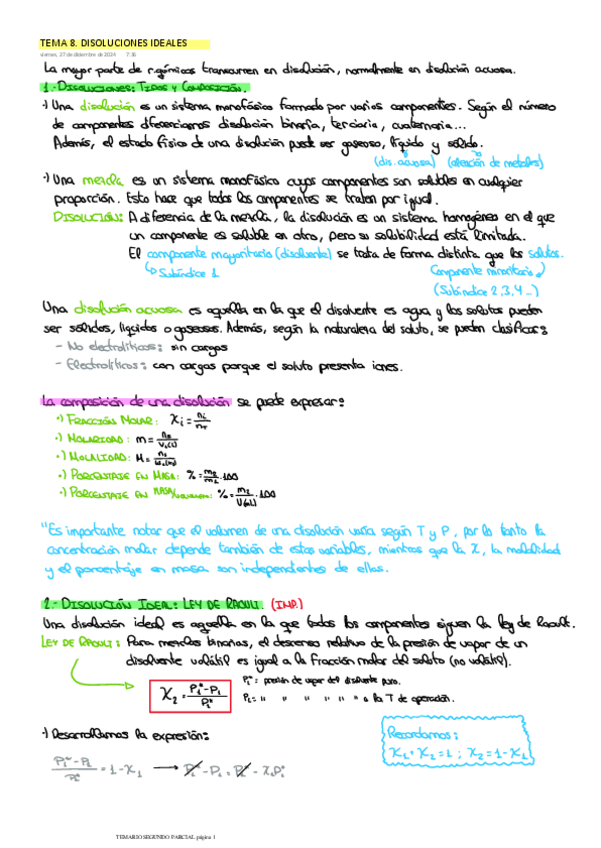 TEMA 8. DISOLUCIONES IDEALES
viernes, 27 de diciembre de 2024 7:16
La mayor parte de r.químicas transcurren en disolución, normalmente en disolución acuosa.
1.- DISOLUCIONES: TIPOS Y COMPOSICIÓN.
·) Una disolución es un sistema monofásico formado por varios componentes. Según el número
de componentes diferenciamos disolución binaria, terciaria, cuaternaria...
Además, el estado físico de una disolución puede ser gaseoso, líquido y sólido.
(dis. acuosa) (aleación de metales)
·) Una mezcla es un sistema monofásico cuyos componentes son solubles en cualquier
proporción. Esto hace que todos los componentes se traten por igual.
DISOLUCIÓN: A diferencia de la mezcla, la disolución es un sistema homogéneo en el que
un componente es soluble en otro, pero su solubilidad está limitada.
El componente mayoritario (disolvente) se trata de forma distinta que los solutos.
↳ Subíndice 1 Componente minoritario
(Subíndice 2,3,4...)
Una disolución acuosa es aquella en la que el disolvente es agua y los solutos pueden
ser sólidos, líquidos o gaseosos. Además, según la naturaleza del soluto, se pueden clasificar:
- No electrolíticos: sin cargas
- Electrolíticos: con cargas porque el soluto presenta iones.
La composición de una disolución se puede expresar:
·) FRACCIÓN MOLAR: χi = ni/nT
·) MOLARIDAD: m =
·) MOLALIDAD: M =
·) PORCENTAJE EN MASA: % = m2/m ·100
·) PORCENTAJE EN MASA/VOLUMEN: % = m2/V(ml) ·100
"Es importante notar que el volumen de una disolución varía según T y P, por lo tanto la
concentración molar depende también de estas variables, mientras que la χ, la molalidad
y el porcentaje en masa son independientes de ellas.
2.- DISOLUCIÓN IDEAL: LEY DE RAOULT. (IMP.)
Una disolución ideal es aquella en la que todos los componentes siguen la ley de Raoult.
LEY DE RAOULT: Para mezclas binarias, el descenso relativo de la presión de vapor de un
disolvente volátil es igual a la fracción molar del soluto (no volátil).
χ2 = P1*-P1/P1*
P1* = presión de vapor del disolvente puro.
P1 = " " " " " " a la T de operación.
·) Desarrollamos la expresión:
Recordamos:
χ1 + χ2 = 1 ; χ2 = 1-χ1
P1*-P1/P1* = 1-χ1 → P1* - P1 = P1* - χ1P1*
TEMARIO SEGUNDO PARCIAL página 1